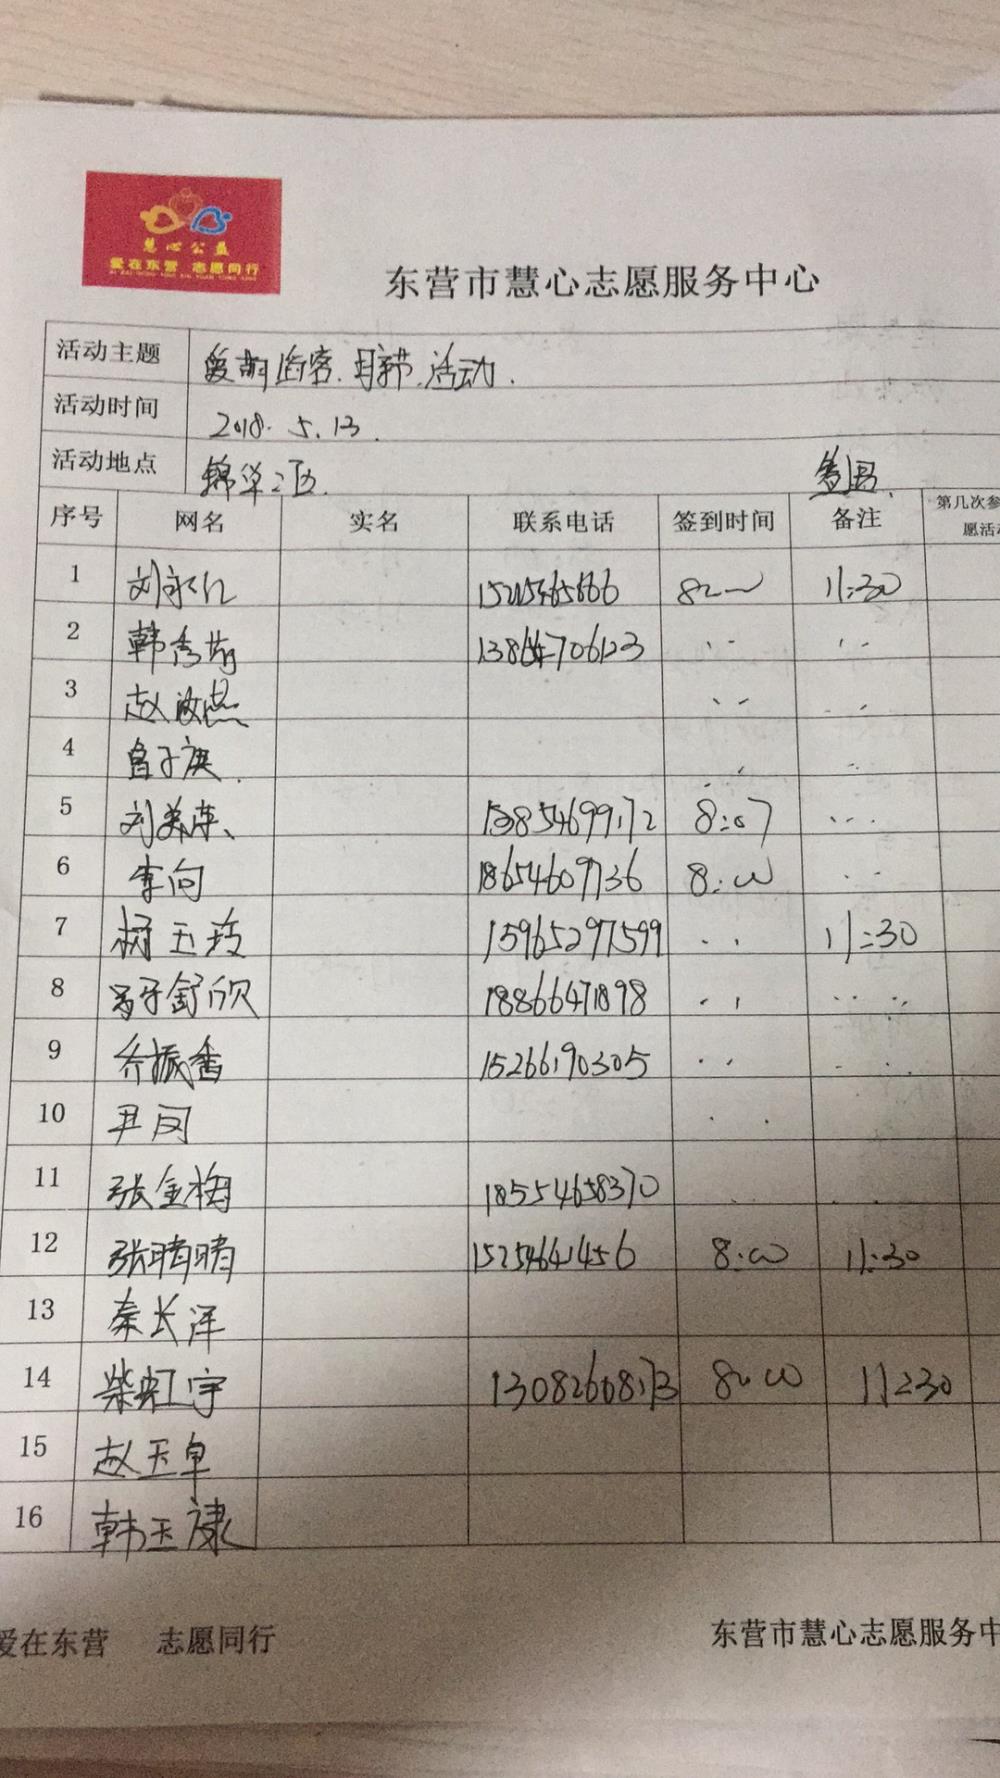 慧心公益
爱在东营 志愿同行
东营市慧心志愿服务中心
活动主题 母亲节.活动.
活动时间 2018. 5.13.
活动地点 锦华二区.
序号 网名 实名 联系电话 签到时间 备注 第几次参
愿活动
1 刘永仁 11:30
2 韩秀菊
3 赵
4 子庚.
5 刘美英、 8:07
6 李向 18654609736 8:00
7 杨玉玲 15965297599 11:30
8 舒欣 18866471898
9 乔振香 15266190305
10 尹闵
11 张金梅 18554658370
12 张晴晴 15254641456 8:00 11:30
13 秦长泽
14 柴虹宇 13082608173 8:00 11:30
15 赵玉卓
16 韩玉康
爱在东营 志愿同行 东营市慧心志愿服务中